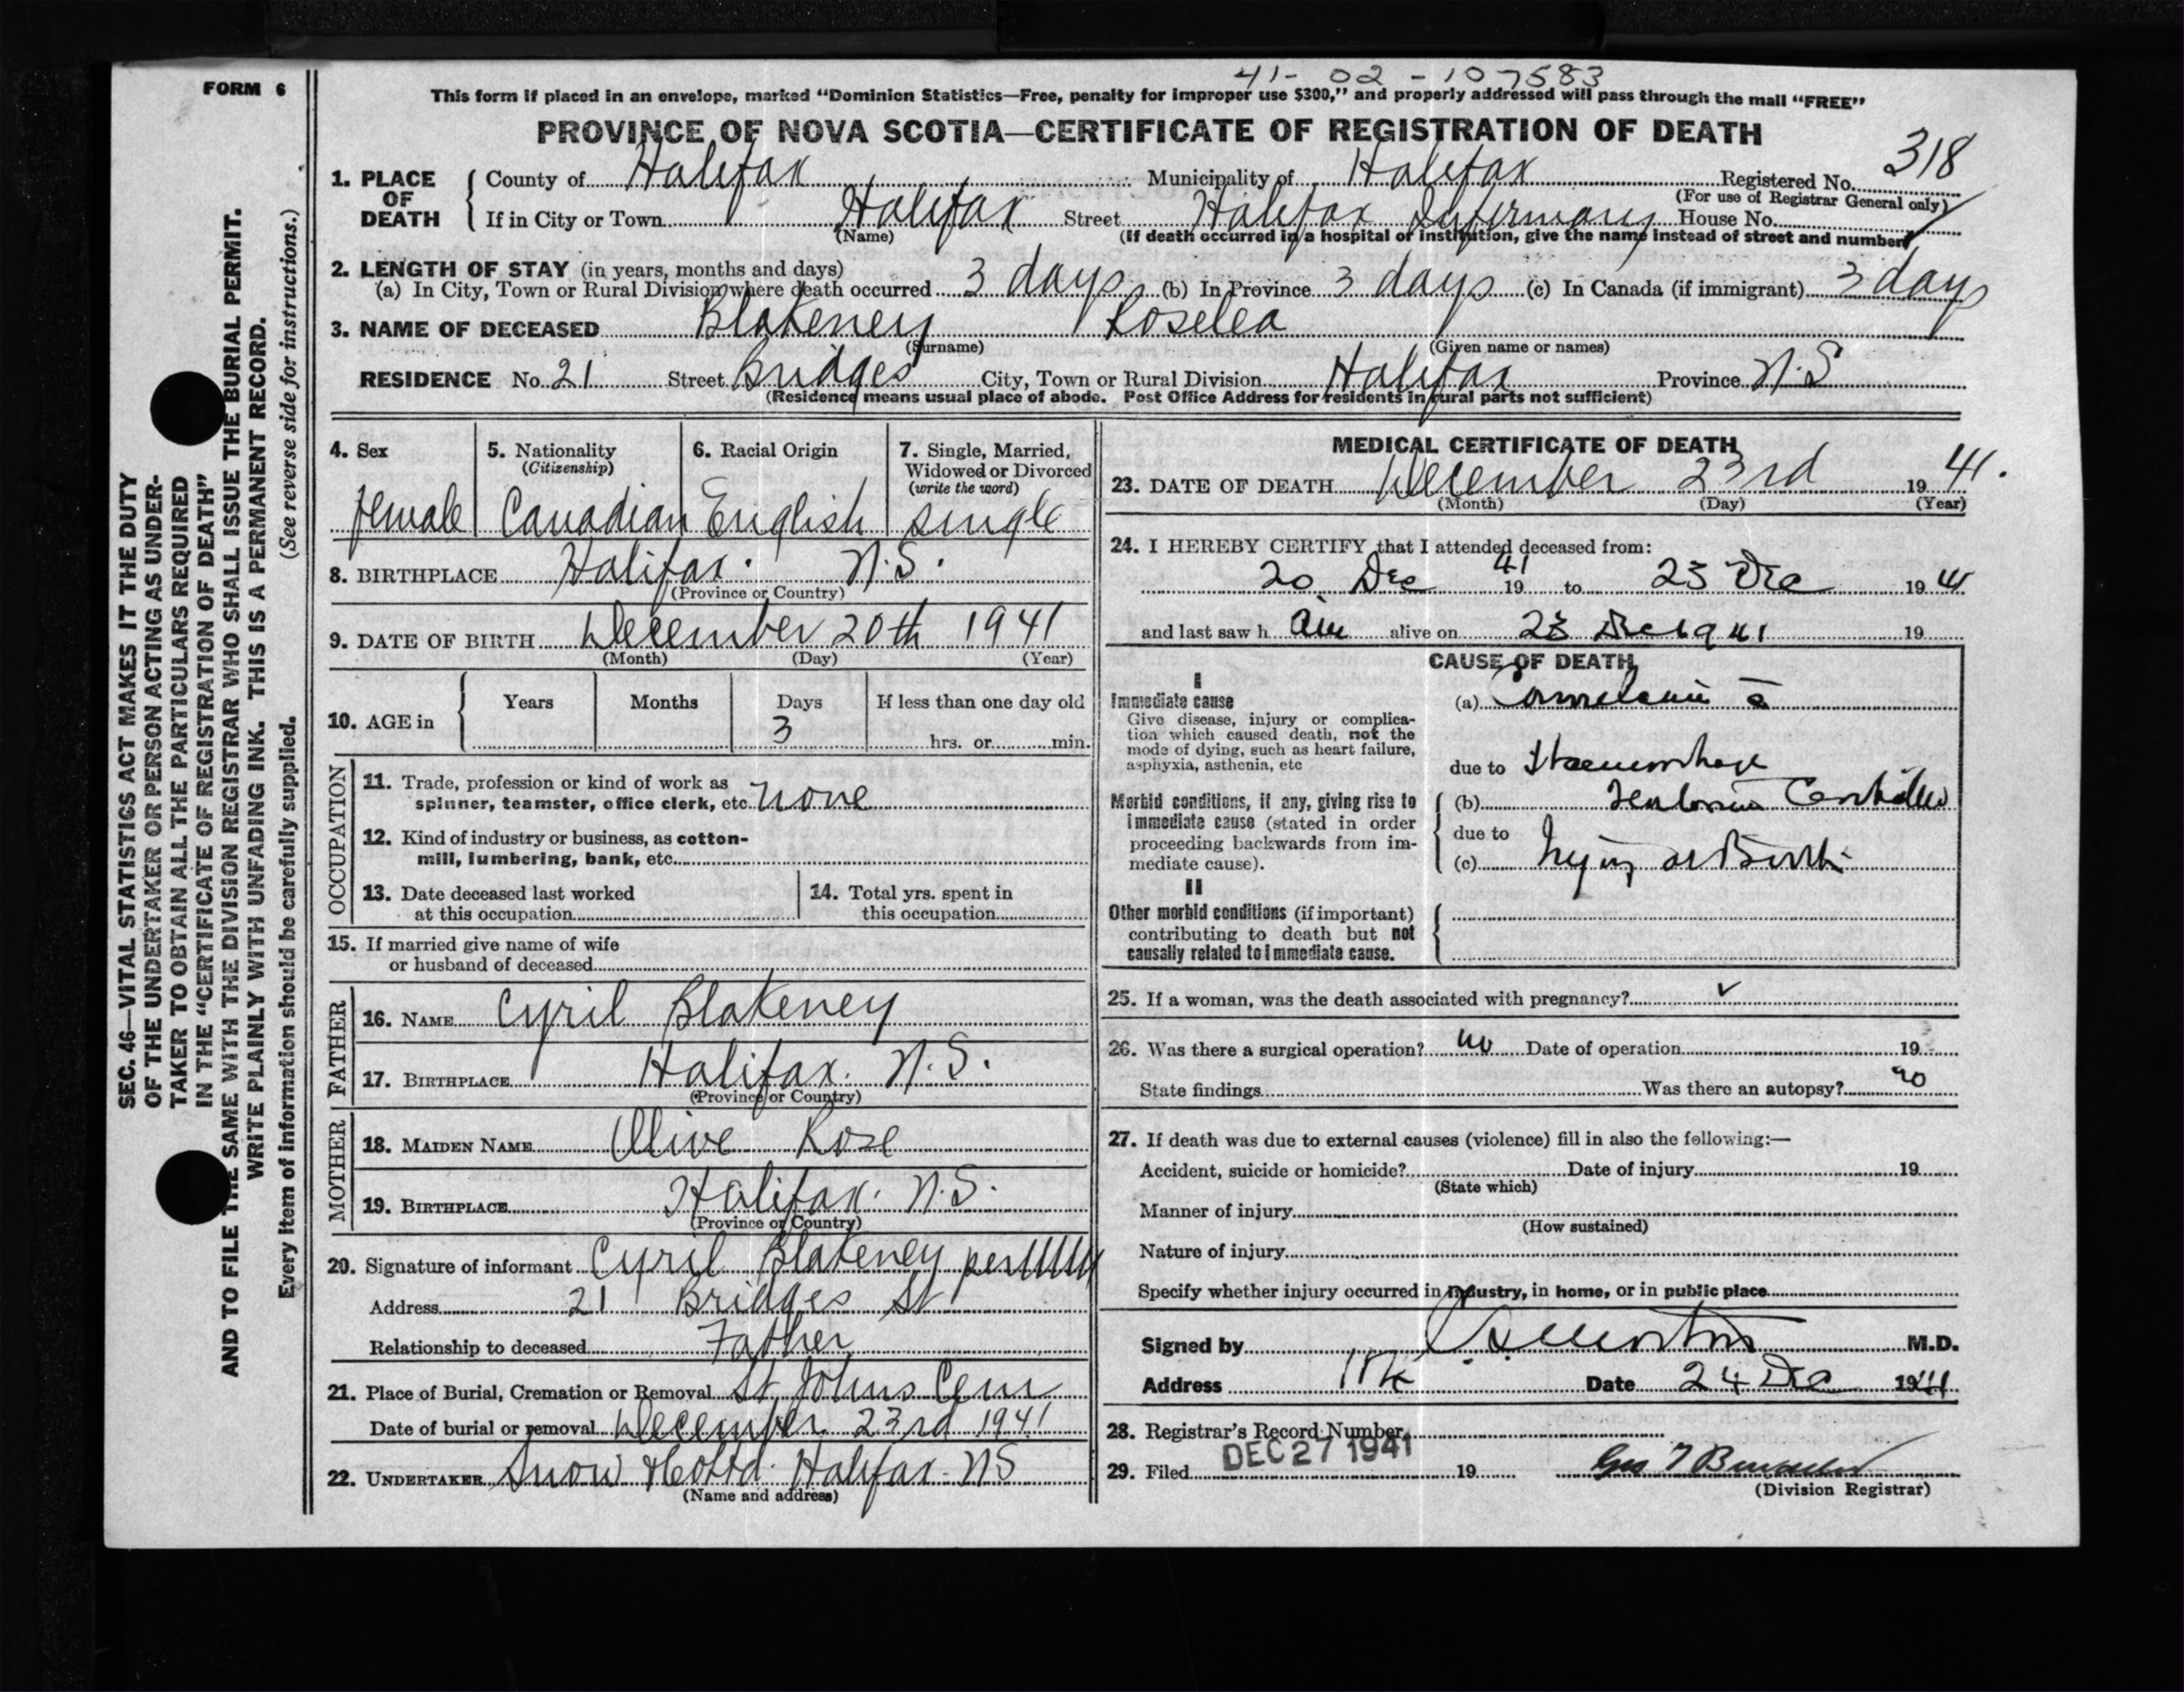 41-02-107583
FORM 6
This form if placed in an envelope, marked "Dominion Statistics—Free, penalty for improper use $300," and properly addressed will pass through the mail "FREE"
PROVINCE OF NOVA SCOTIA—CERTIFICATE OF REGISTRATION OF DEATH
318
1. PLACE OF DEATH
County of Halifax Municipality of Halifax Registered No.
(For use of Registrar General only)
If in City or Town Halifax Street Halifax Infirmary House No.
(Name) (If death occurred in a hospital or institution, give the name instead of street and number)
2. LENGTH OF STAY (in years, months and days)
(a) In City, Town or Rural Division where death occurred 3 days (b) In Province 3 days (c) In Canada (if immigrant) 3 days
3. NAME OF DECEASED Blakeney Roselea
(Surname) (Given name or names)
RESIDENCE No. 21 Street Bridges City, Town or Rural Division Halifax Province N.S
(Residence means usual place of abode. Post Office Address for residents in rural parts not sufficient)
4. Sex
female
5. Nationality
(Citizenship)
Canadian
6. Racial Origin
English
7. Single, Married,
Widowed or Divorced
(write the word)
single
8. BIRTHPLACE Halifax. N.S.
(Province or Country)
9. DATE OF BIRTH December 20th 1941
(Month) (Day) (Year)
10. AGE in
Years Months Days If less than one day old
3 hrs. or min.
OCCUPATION
11. Trade, profession or kind of work as
spinner, teamster, office clerk, etc. none
12. Kind of industry or business, as cotton-
mill, lumbering, bank, etc.
13. Date deceased last worked
at this occupation
14. Total yrs. spent in
this occupation
15. If married give name of wife
or husband of deceased
FATHER
16. NAME Cyril Blakeney
17. BIRTHPLACE Halifax. N.S.
(Province or Country)
MOTHER
18. MAIDEN NAME Olive Rose
19. BIRTHPLACE Halifax. N.S.
(Province or Country)
20. Signature of informant Cyril Blakeney per
Address 21 Bridges St
Relationship to deceased Father
21. Place of Burial, Cremation or Removal St Johns Cem
Date of burial or removal December 23rd 1941
22. UNDERTAKER Snow & Co Ltd. Halifax NS
(Name and address)
MEDICAL CERTIFICATE OF DEATH
23. DATE OF DEATH December 23rd 1941.
(Month) (Day) (Year)
24. I HEREBY CERTIFY that I attended deceased from:
20 Dec 1941 to 23 Dec 1941
and last saw h alive on 23 Dec 1941 19
CAUSE OF DEATH
I
Immediate cause
Give disease, injury or complica-
tion which caused death, not the
mode of dying, such as heart failure,
asphyxia, asthenia, etc
(a)
due to Haemorrhage
Morbid conditions, if any, giving rise to
immediate cause (stated in order
proceeding backwards from im-
mediate cause).
(b)
due to
(c) Injury at Birth
II
Other morbid conditions (if important)
contributing to death but not
causally related to immediate cause.
25. If a woman, was the death associated with pregnancy? ✓
26. Was there a surgical operation? no Date of operation 19
State findings Was there an autopsy? no
27. If death was due to external causes (violence) fill in also the following:—
Accident, suicide or homicide? Date of injury 19
(State which)
Manner of injury
(How sustained)
Nature of injury
Specify whether injury occurred in industry, in home, or in public place
Signed by M.D.
Address Date 24 Dec 1941
28. Registrar's Record Number
29. Filed DEC 27 1941 19
(Division Registrar)
SEC. 46—VITAL STATISTICS ACT MAKES IT THE DUTY
OF THE UNDERTAKER OR PERSON ACTING AS UNDER-
TAKER TO OBTAIN ALL THE PARTICULARS REQUIRED
IN THE "CERTIFICATE OF REGISTRATION OF DEATH"
AND TO FILE THE SAME WITH THE DIVISION REGISTRAR WHO SHALL ISSUE THE BURIAL PERMIT.
WRITE PLAINLY WITH UNFADING INK. THIS IS A PERMANENT RECORD.
Every item of information should be carefully supplied. (See reverse side for instructions.)